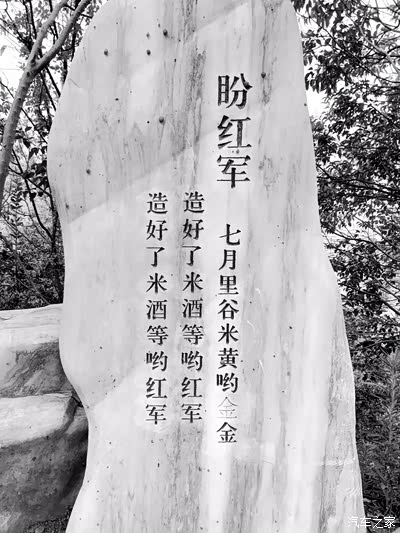 盼红军
七月里谷米黄哟金金
造好了米酒等哟红军
造好了米酒等哟红军
汽车之家